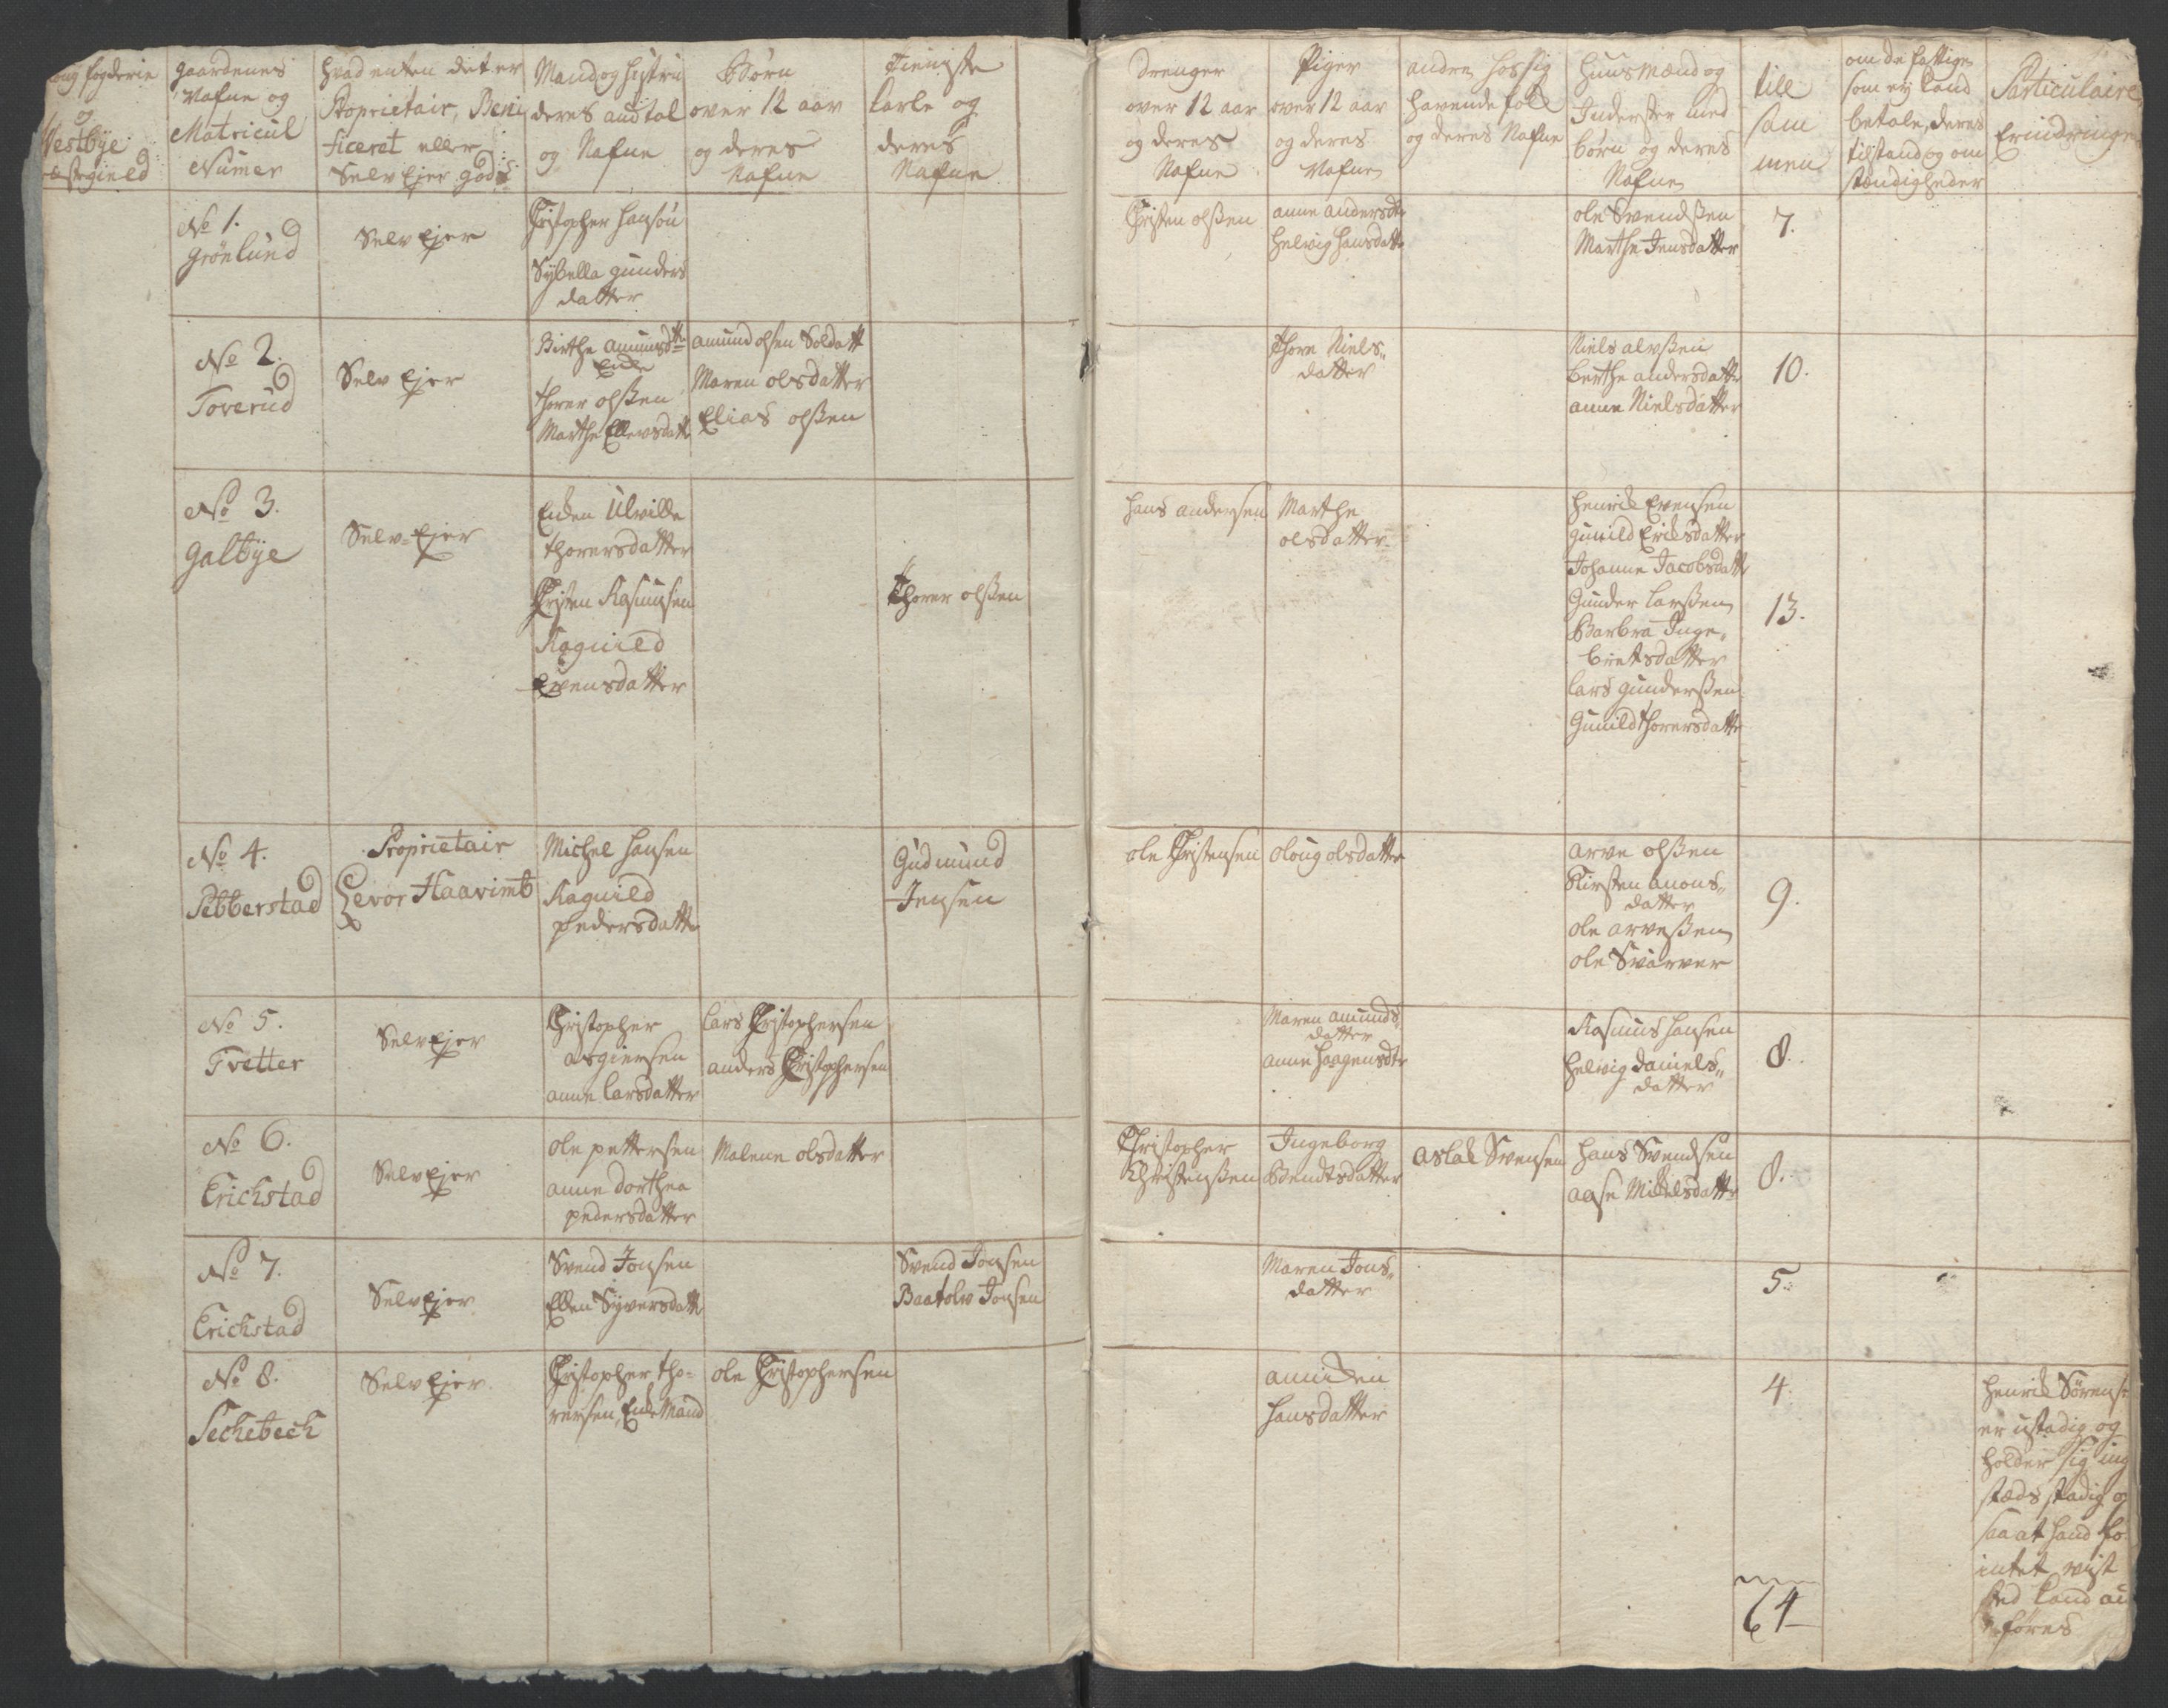 fogderie
Vestbÿe
gield
gaardenes
Nafne og
Matricul
Numer
hvad enten det er
Proprietair, Beni
ficeret eller
Selv Ejer gods
Mand og hustru
deres andtal
og Nafne
Børn
over 12 aar
og deres
Nafne
Tieniste
karle og
deres
Nafne
Drenger
over 12 aar
og deres
Nafne
Piger
over 12 aar
og deres
Nafne
andre hos sig
havende folk
og deres Nafne
Huusmænd og
Inderster med
børn og deres
Nafne
till
sam
men
om de fattige
som ej kand
betale, deres
tilstand og om
stændigheder
Particulaire
Erindringer
No 1.
Grönlund
Selv Ejer
Christopher Hansøn
Sÿbella gunders
datter
Christen olßen
anne andersdtr
Helvig Hansdattr
ole Svendßen
Marthe Jensdatter
7.
No 2.
Toverud
Selv Ejer
Birthe amundsdttr
Enke
thorer olßen
Marthe Ellevsdatt
amund olsen Soldatt
Maren olsdatter
Elias olßen
thore Niels„
datter
Niels alvßen
berthe andersdattr
anne Nielsdatter
10.
No 3.
Galbÿe
Selv-Ejer
Enken Ulvilde
thorersdatter
Christen Rasmusen
Raguild
Evensdatter
Thorer olßen
Hans andersen
Marthe
olsdatter
Henrik Evensen
gunild Eriksdatter
Johanne Jacobsdatt
Gunder larßen
Barbra Inge„
bretsdatter
lars gunderßen
Gunild thorersdattr
13.
No 4.
Sebberstad
Proprietair
Gevor Haavimb
Michel Hansen
Raguild
pedersdattr
Gudmund
Jensen
ole Christensen
oloug olsdatter
arve olßen
Kirsten anons„
datter
ole arveßen
ole Svarver
9.
No 5.
Tvetter
Selv Ejer
Christopher
asgiersen
anne larsdatter
lars Christophersen
anders Christophersen
Maren amunds„
datter
anne Haagensdtr
Rasmus Hansen
Helvig daniels„
datter
8.
No 6.
Erichstad
Selv Ejer
ole pettersen
anne dorthea
pedersdatter
Malene olsdatter
Christopher
Christenßen
Ingeborg
Bendtsdatter
aslak Svensen
Hans Svendsen
aase Mickelsdattr
8.
No 7.
Erichstad
Selv Ejer
Svend Jonsen
Ellen Syversdatt
Svend Jonsen
Baatolv Jonsen
Maren Jons„
datter
5.
No 8.
Sechebech
Selv Ejer
Christopher tho-
rersen, Enke Mand
ole Christophersen
anniken
Hansdatter
4.
Henrik Sörens:
er ustadig og
holder sig ing
stæds stadig
saa at hand
intet vist
sted kand
föres
64